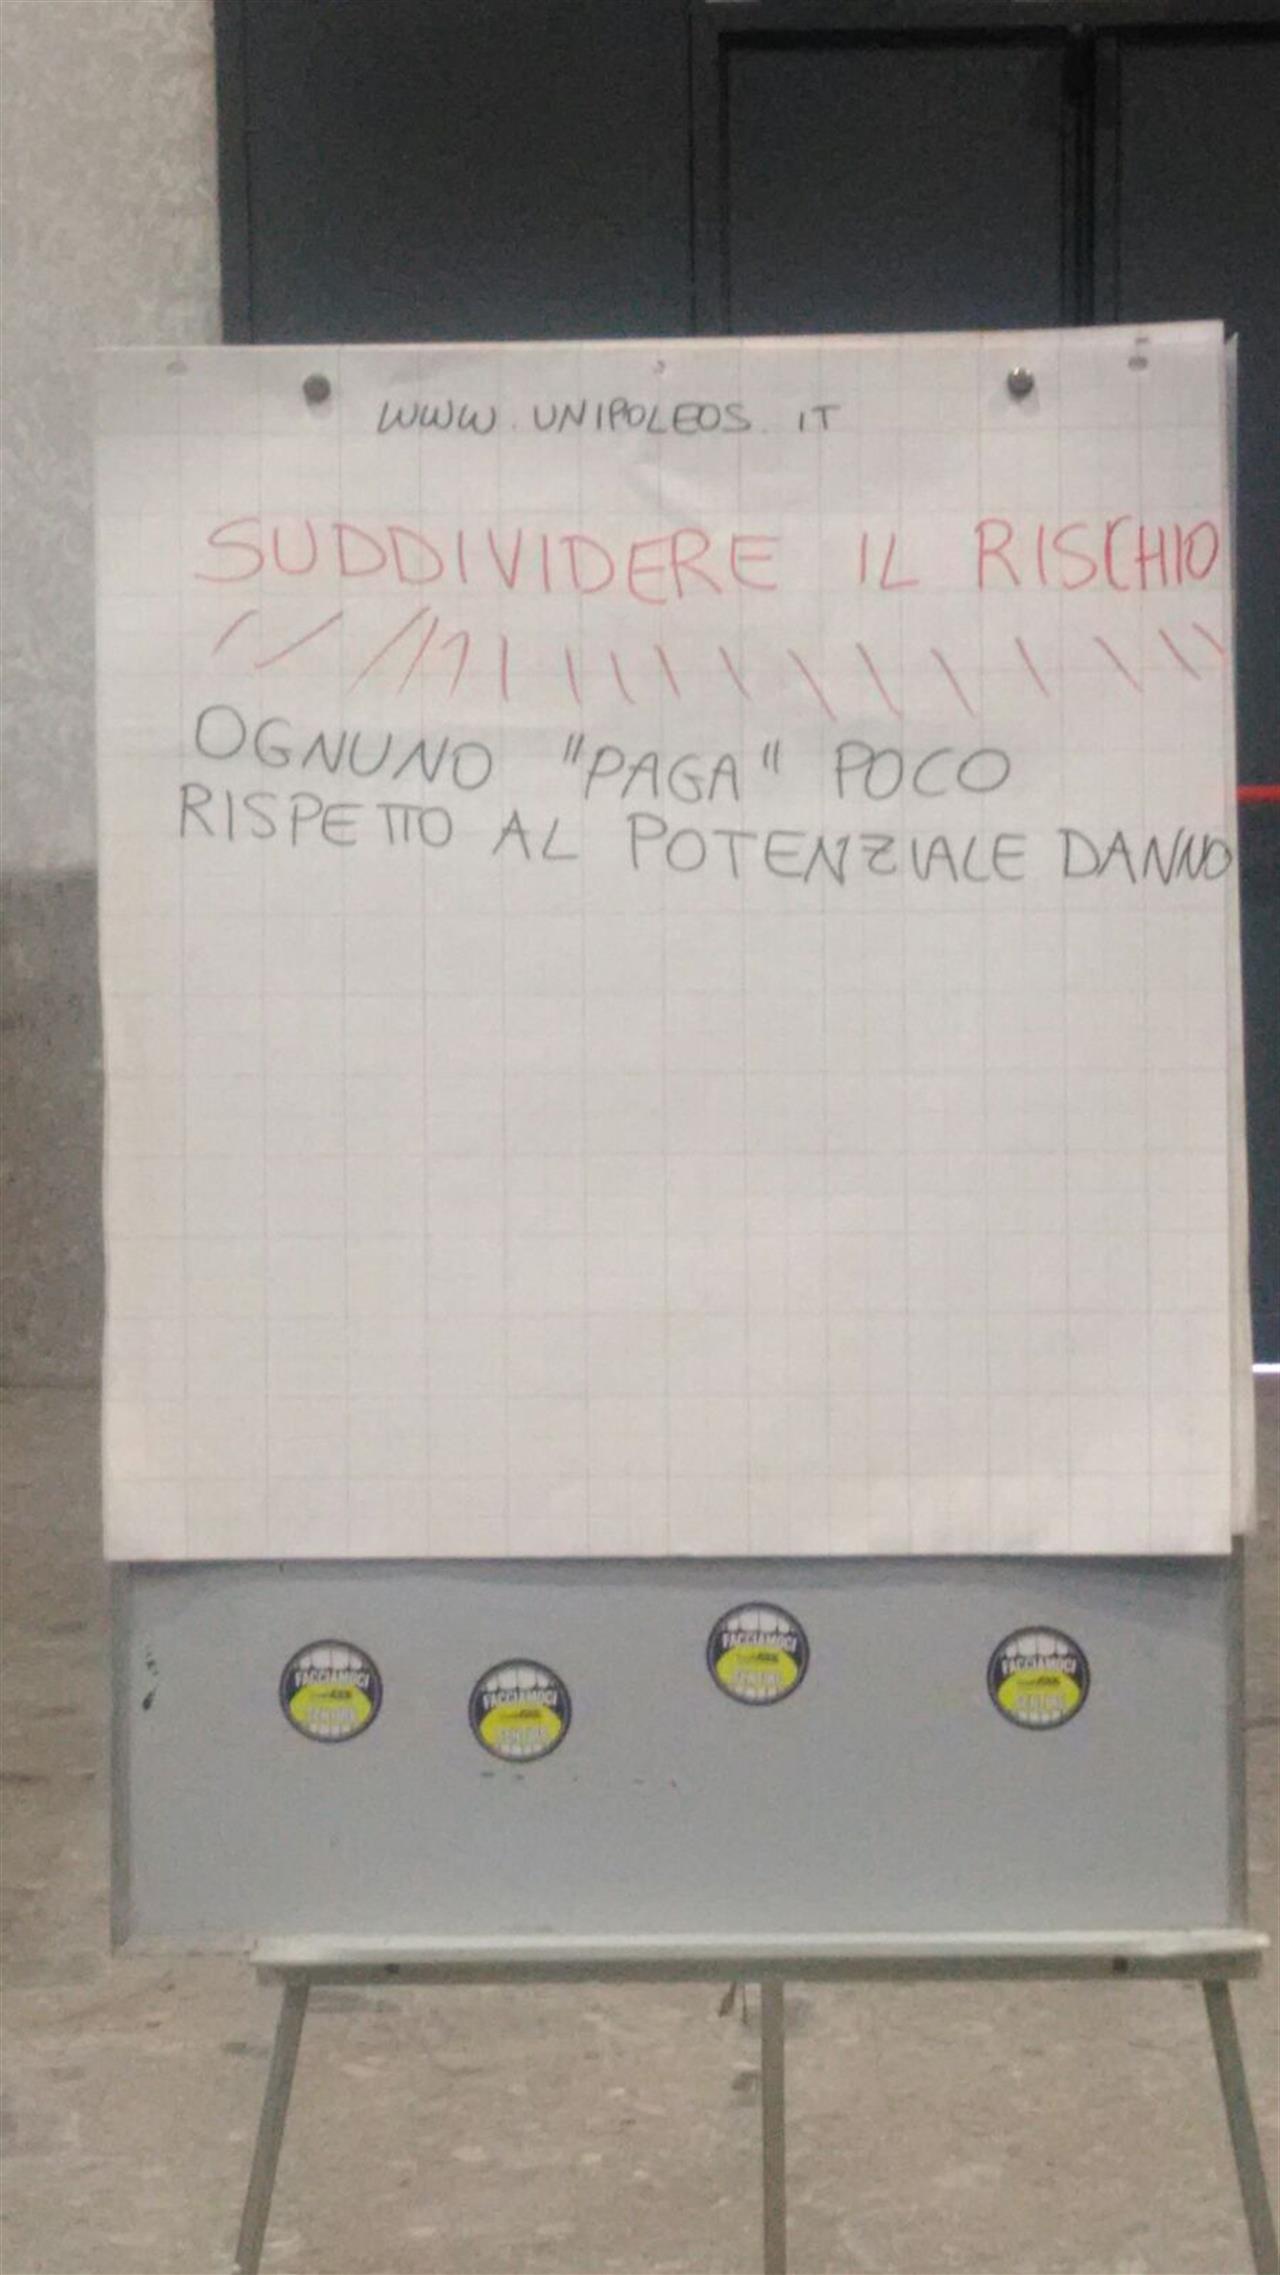 WWW.UNIPOLEOS.IT
SUDDIVIDERE IL RISCHIO
OGNUNO "PAGA" POCO
RISPETTO AL POTENZIALE DANNO
FACCIAMOCI
SENTIRE
FACCIAMOCI
SENTIRE
FACCIAMOCI
SENTIRE
FACCIAMOCI
SENTIRE